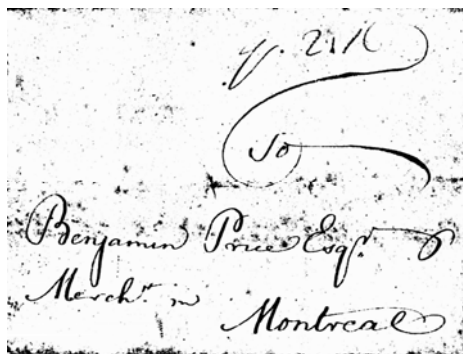 To
Benjamin Price Esqr.
Mercht. in
Montreal